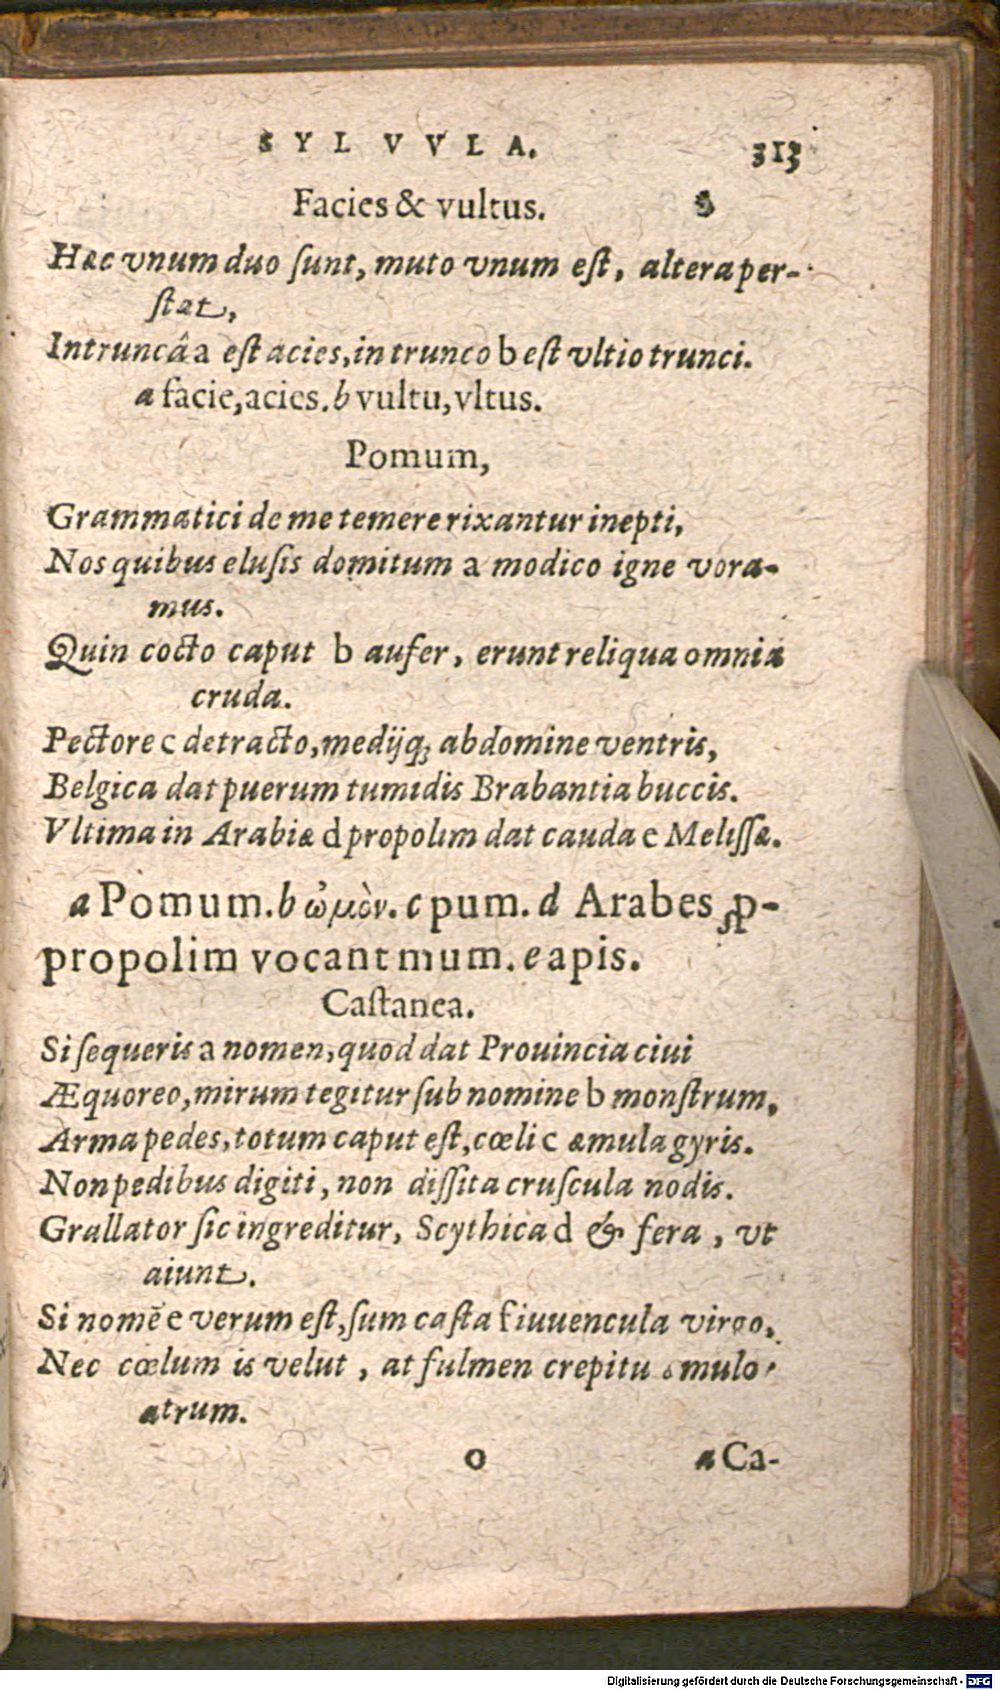 SYLVVLA. 313
Facies & vultus.
Hæc vnum duo ſunt, muto vnum eſt, altera per-
ſtat,
In truncâ a eſt acies, in trunco b eſt vltio trunci.
a facie, acies. b vultu, vltus.
Pomum,
Grammatici de me temere rixantur inepti,
Nos quibus eluſis domitum a modico igne vora-
mus.
Quin cocto caput b aufer, erunt reliqua omnia
cruda.
Pectore c detracto, medijq; abdomine ventris,
Belgica dat puerum tumidis Brabantia buccis.
Vltima in Arabiæ d propolim dat cauda e Meliſſæ.
a Pomum. b ὠμὸν. c pum. d Arabes ꝓ-
propolim vocant mum. e apis.
Caſtanea.
Si ſequeris a nomen, quod dat Prouincia ciui
Æquoreo, mirum tegitur ſub nomine b monſtrum,
Arma pedes, totum caput eſt, cœli c æmula gyris.
Non pedibus digiti, non diſſita cruſcula nodis.
Grallator ſic ingreditur, Scythica d & fera, vt
aiunt.
Si nomē e verum eſt, ſum caſta f iuuencula virgo,
Nec cœlum is velut, at fulmen crepitu æmulo
atrum.
o a Ca-
Digitalisierung gefördert durch die Deutsche Forschungsgemeinschaft - DFG